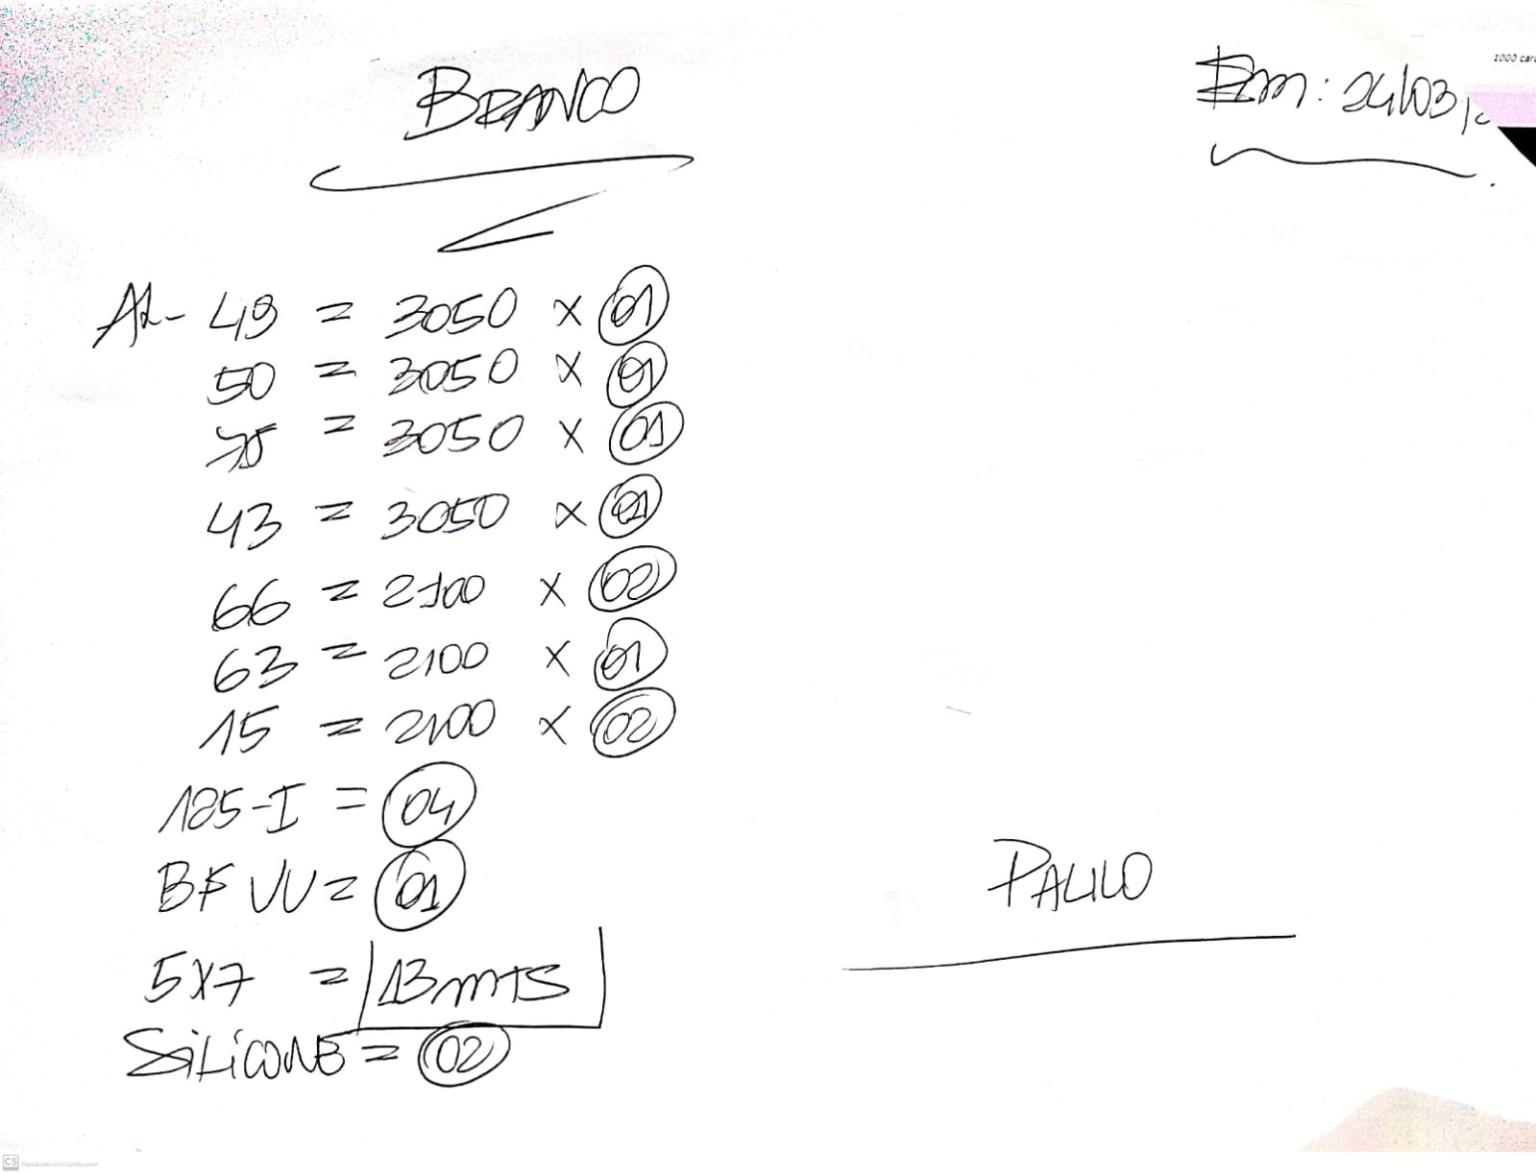 BRANCO
Em: 24/03/
AL- 49 = 3050 x 01
50 = 3050 x 01
= 3050 x 01
43 = 3050 x 01
66 = 2100 x 02
63 = 2100 x 01
15 = 2100 x 02
185-I = 04
BF VV = 01
5x7 = 13mts
SiLiCONE = 02
PAULO
1000
CS Digitalizado com CamScanner